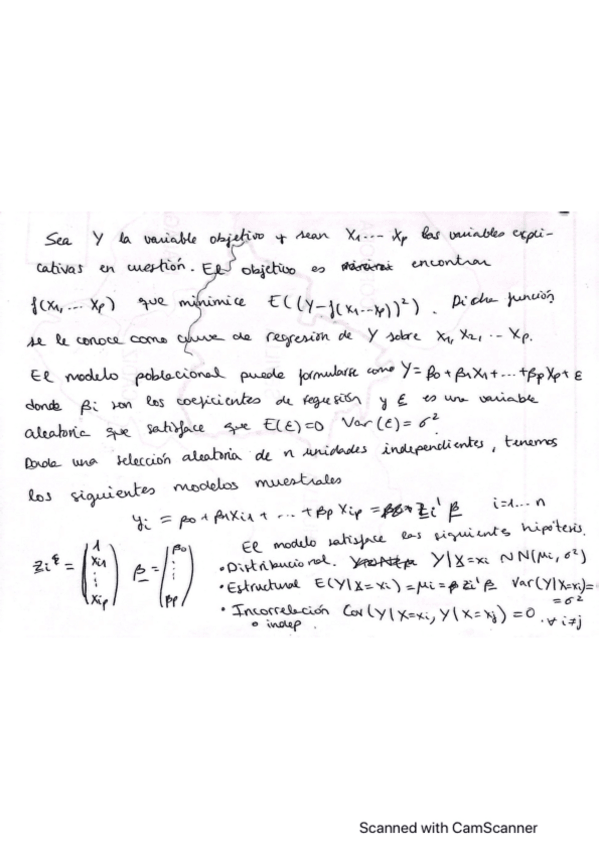 Sea Y la variable objetivo + sean X1 ... Xp las variables expli-
cativas en cuestión. El objetivo es encontrar
f(x1, ... xp) que minimice E((Y-f(x1...xp))²). Dicha función
se le conoce como curva de regresión de Y sobre x1, x2, ... xp.
El modelo poblacional puede formularse como Y = β0 + β1X1 + ... + βpXp + ε
donde βi son los coeficientes de regresión y ε es una variable
aleatoria que satisface que E(ε)=0 Var(ε)=σ²
Dada una selección aleatoria de n unidades independientes, tenemos
los siguientes modelos muestrales
yi = β0 + β1Xi1 + ... + βp Xip = Zi' β i=1...n
El modelo satisface las siguientes hipótesis.
Zi = (1 Xi1 ⋮ Xip) β = (β0 ⋮ βp)
• Distribucional. Y|X=xi ~ N(μi, σ²)
• Estructural E(Y|X=xi) = μi = Zi' β Var(Y|X=xi) =
= σ²
• Incorrelación Cov(Y|X=xi, Y|X=xj) = 0 . ∀ i≠j
o indep.
Scanned with CamScanner